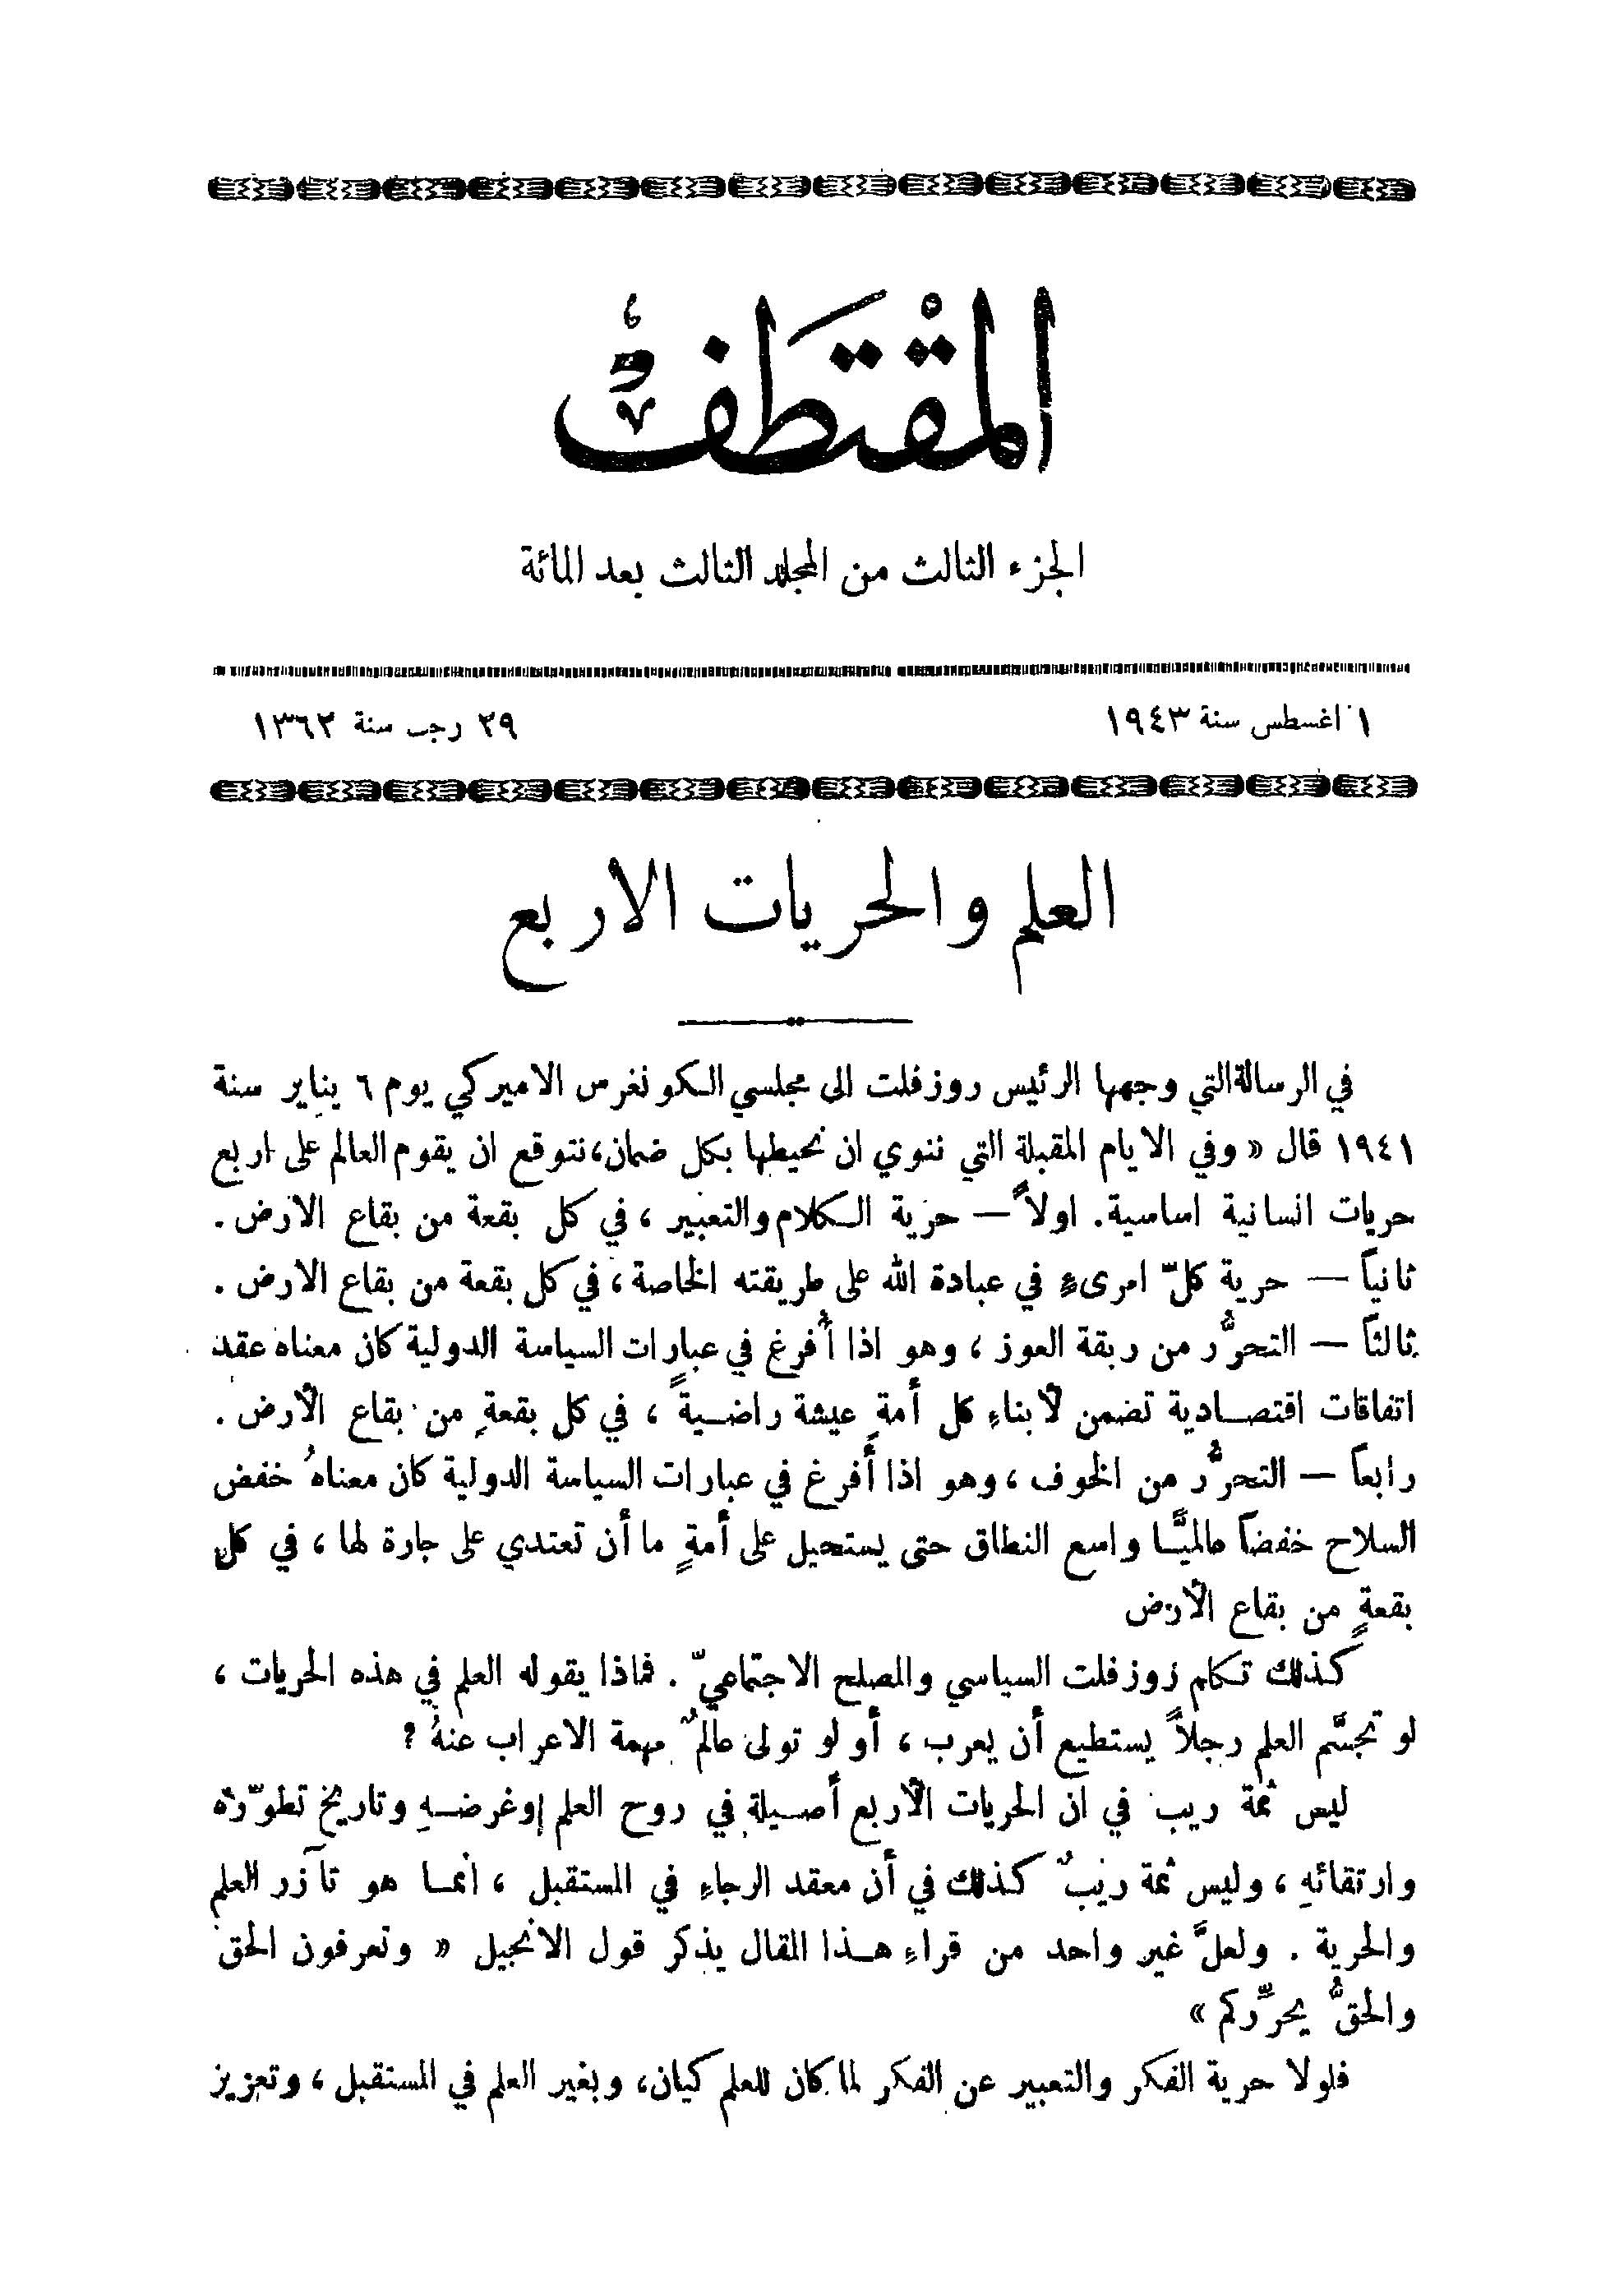 المقتطف
الجزء الثالث من المجلد الثالث بعد المائة
١ اغسطس سنة ١٩٤٣
٢٩ رجب سنة ١٣٦٢
العلم والحريات الاربع
في الرسالة التي وجهها الرئيس روزفلت الى مجلسي الكونغرس الاميركي يوم ٦ يناير سنة
١٩٤١ قال « وفي الايام المقبلة التي ننوي ان نحيطها بكل ضمان، نتوقع ان يقوم العالم على اربع
حريات انسانية اساسية. اولاً — حرية الكلام والتعبير ، في كل بقعة من بقاع الارض .
ثانياً — حرية كلّ امرىءٍ في عبادة الله على طريقته الخاصة ، في كل بقعة من بقاع الارض .
ثالثاً — التحرُّر من ربقة العوز ، وهو اذا أُفرغ في عبارات السياسة الدولية كان معناه عقد
اتفاقات اقتصادية تضمن لأبناءِ كل أمةٍ عيشة راضيةً ، في كل بقعةٍ من بقاع الأرض .
رابعاً — التحرُّر من الخوف ، وهو اذا أُفرغ في عبارات السياسة الدولية كان معناهُ خفض
السلاح خفضاً عالميًّا واسع النطاق حتى يستحيل على أمةٍ ما أن تعتدي على جارة لها ، في كلِ
بقعةٍ من بقاع الأرض
كذلك تكلم روزفلت السياسي والمصلح الاجتماعيّ . فماذا يقوله العلم في هذه الحريات ،
لو تجسَّم العلم رجلاً يستطيع أن يعرب ، أو لو تولى عالمٌ مهمة الاعراب عنهُ ؟
ليس ثمة ريب في ان الحريات الأربع أصيلة في روح العلم وغرضهِ وتاريخ تطوّره
وارتقائهِ ، وليس ثمة ريبٌ كذلك في أن معقد الرجاءِ في المستقبل ، انما هو تآزر العلم
والحرية . ولعلَّ غير واحد من قراءِ هذا المقال يذكر قول الانجيل « وتعرفون الحق
والحقُّ يحرِّركم »
فلولا حرية الفكر والتعبير عن الفكر لما كان للعلم كيان، وبغير العلم في المستقبل ، وتعزيز